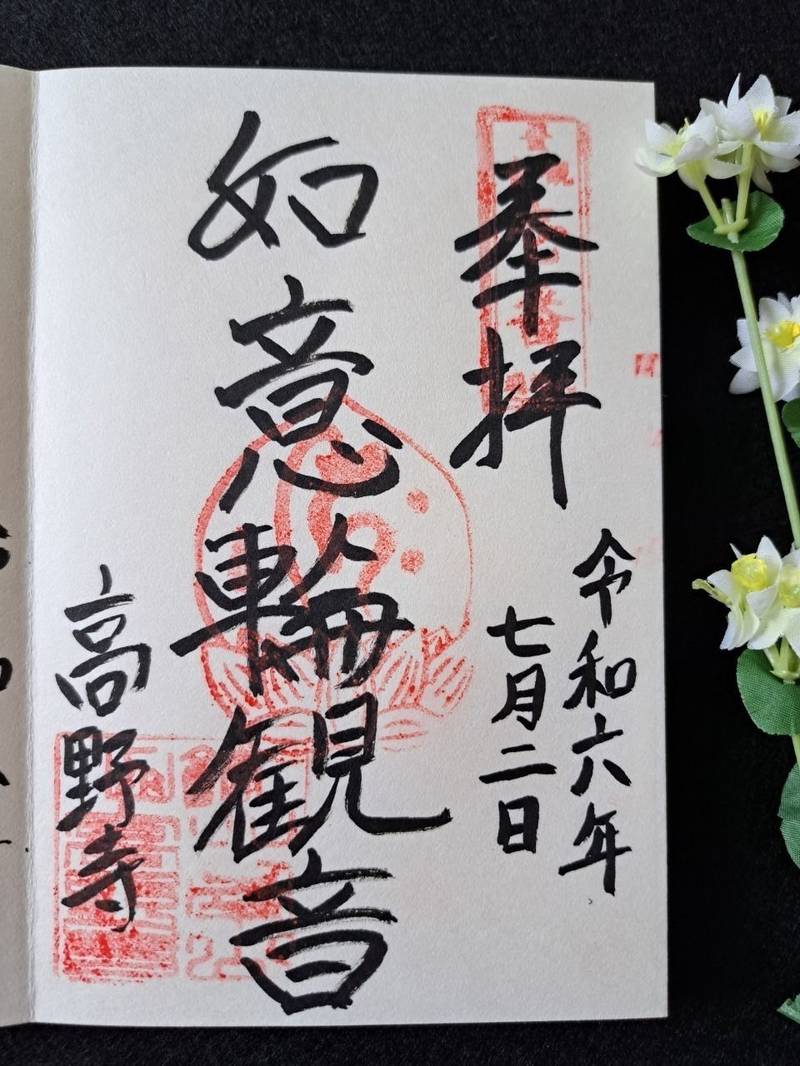 奉拝
令和六年
七月二日
如意輪観音
高野寺